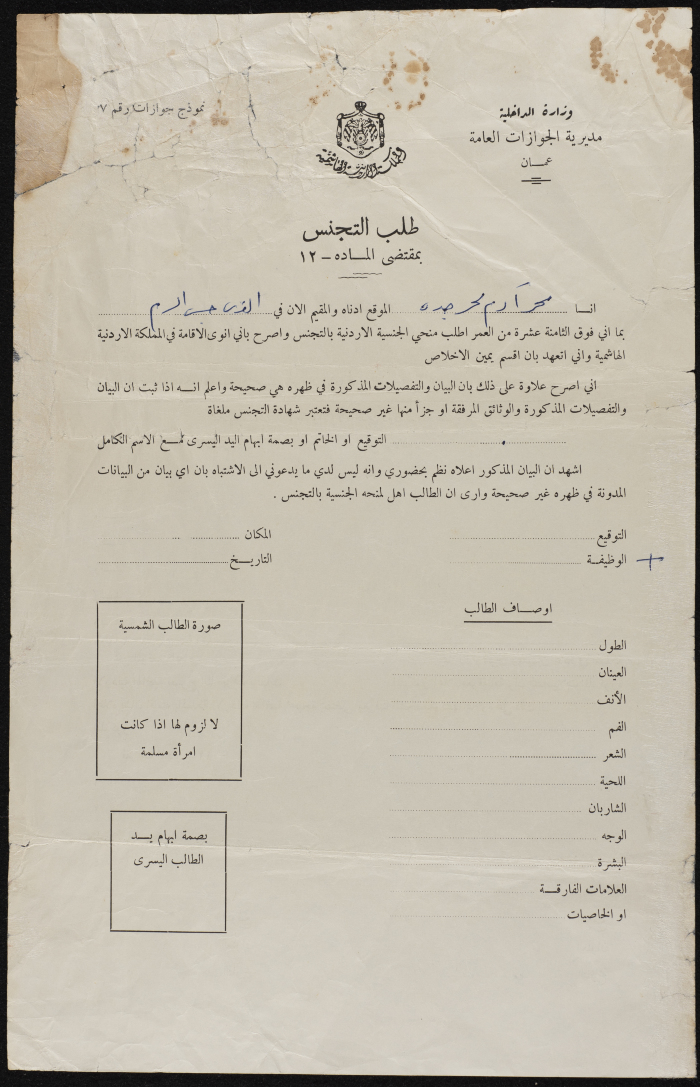 وزارة الداخلية
مديرية الجوازات العامة
عمـــان
نموذج جوازات رقم ٧
المملكة الاردنية الهاشمية
طلب التجنس
بمقتضى المـــاده - ١٢
انـــا محمد آدم محمد الموقع ادناه والمقيم الان في القدس
بما اني فوق الثامنة عشرة من العمر اطلب منحي الجنسية الاردنية بالتجنس واصرح باني انوى الاقامة في المملكة الاردنية
الهاشمية واني اتعهد بان اقسم يمين الاخلاص
اني اصرح علاوة على ذلك بان البيان والتفصيلات المذكورة في ظهره هي صحيحة واعلم انـــه اذا ثبت ان البيان
والتفصيلات المذكورة والوثائق المرفقة او جزأ منها غير صحيحة فتعتبر شهادة التجنس ملغاة
التوقيع او الخاتم او بصمة ابهام اليد اليسرى مـــع الاسم الكامل
اشهد ان البيان المذكور اعلاه نظم بحضوري وانه ليس لدي ما يدعوني الى الاشتباه بان اي بيان من البيانات
المدونة في ظهره غير صحيحة وارى ان الطالب اهل لمنحه الجنسية بالتجنس .
التوقيع
المكان
الوظيفـــة
التاريـــخ
اوصـــاف الطالب
الطول
العينان
الأنف
الفم
الشعر
اللحية
الشاربان
الوجه
البشرة
العلامات الفارقـــة
او الخاصيات
صورة الطالب الشمسية
لا لزوم لها اذا كانت
امرأة مسلمة
بصمة ابهام يـــد
الطالب اليسرى